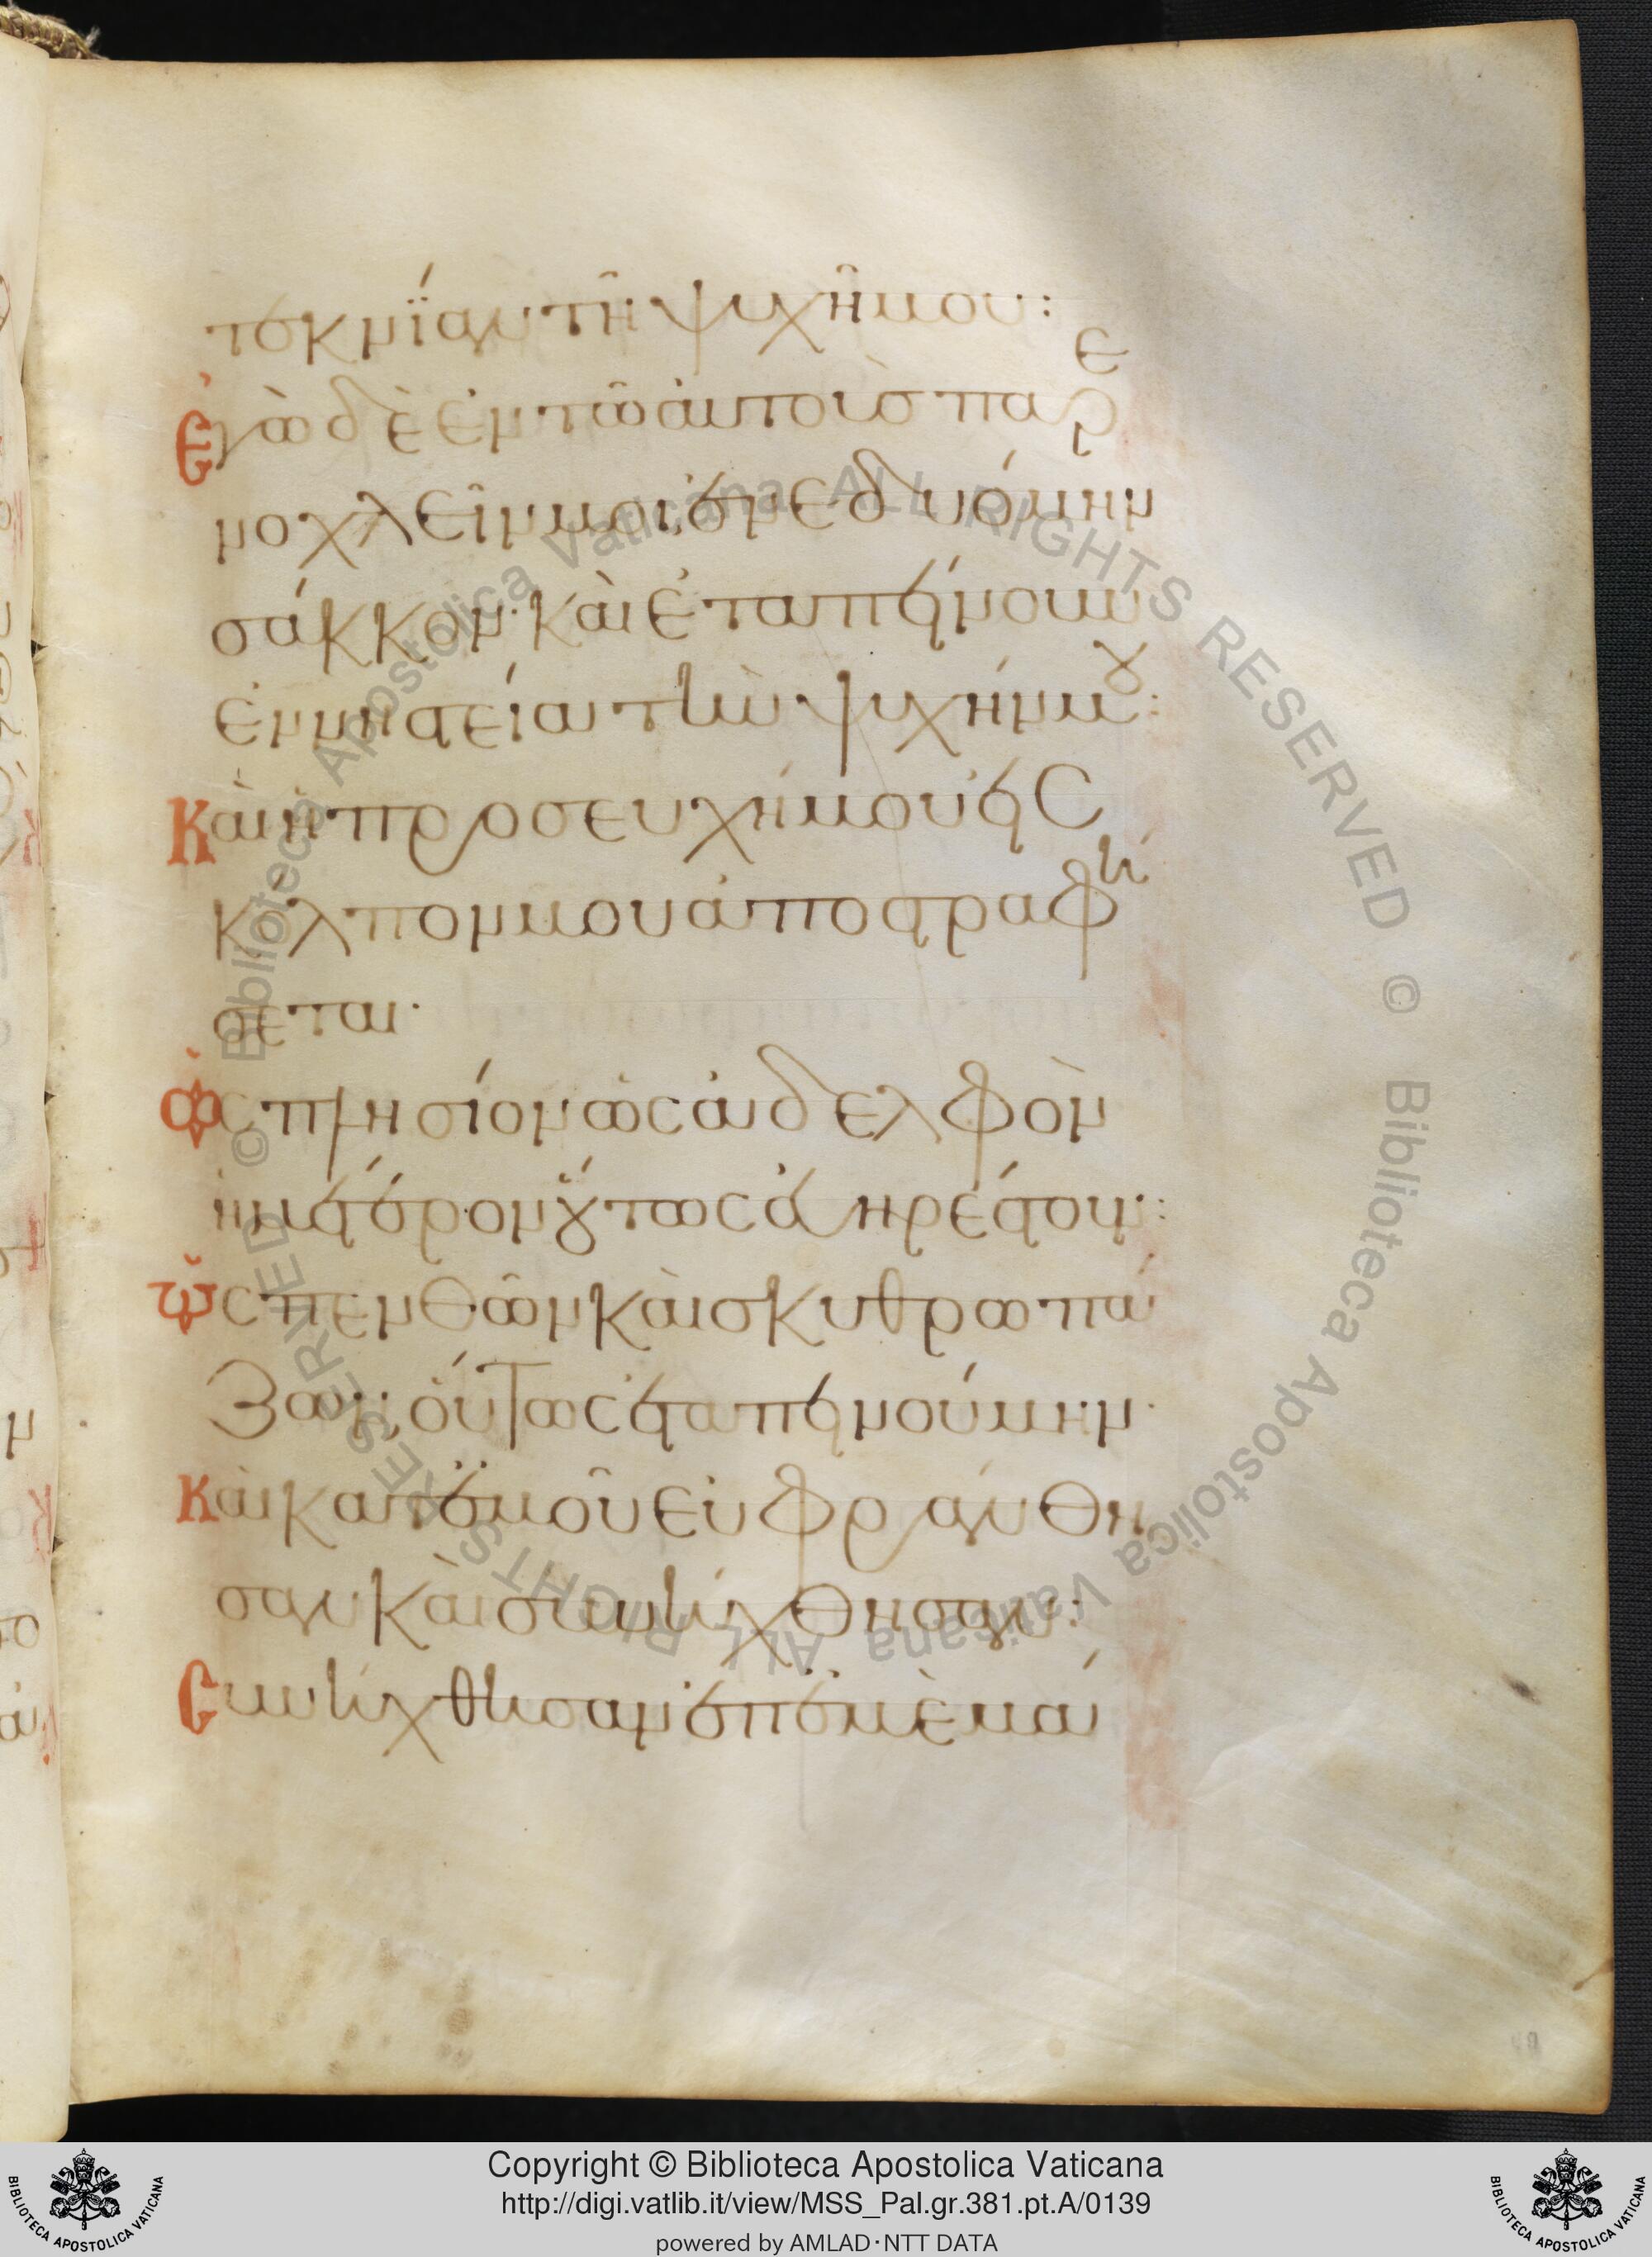 τεκνίαν τῆ ψυχῆ μου:
ἐγὼ δὲ ἐν τῶ αὐτοὺσ παρε
νοχλεῖν μοι, ἐνεδυόμην
σάκκον· καὶ ἐταπείνουν
ἐν νηστεία τὴν ψυχήν μου:
Καὶ ἡ προσευχή μου εἰς
κόλπον μου ἀποστραφή
σεται·
ὡς πλησίον ὡς ἀδελφὸν
ἡμέτερον οὕτως εὐηρέστουν:
ὡς πενθῶν καὶ σκυθρωπά
ζων, οὕτως ἐταπεινούμην·
Καὶ κατ' ἐμοῦ εὐφράνθη
σαν καὶ συνήχθησαν:
Συνήχθησαν ἐπ' ἐμὲ μά
Copyright © Biblioteca Apostolica Vaticana
http://digi.vatlib.it/view/MSS_Pal.gr.381.pt.A/0139
powered by AMLAD·NTT DATA
© Biblioteca Apostolica Vaticana ALL RIGHTS RESERVED © Biblioteca Apostolica Vaticana ALL RIGHTS RESERVED
BIBLIOTECA APOSTOLICA VATICANA
BIBLIOTECA APOSTOLICA VATICANA